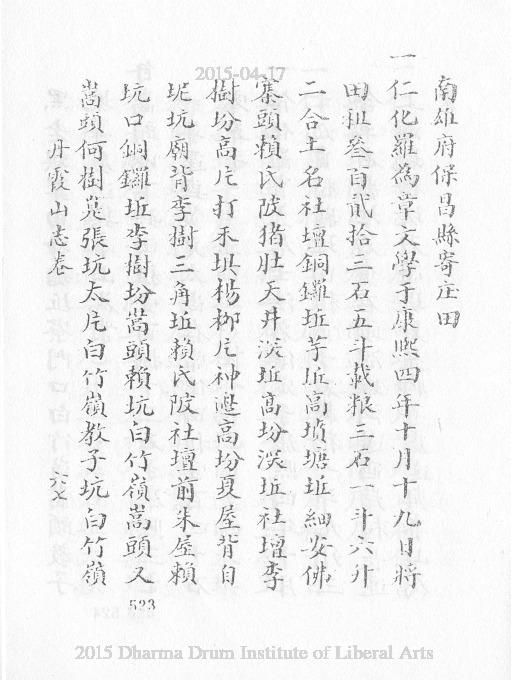 2015-04-17
南雄府保昌縣寄庄田
一仁化羅為章文學于康熙四年十月十九日將
田租叁百貳拾三石五斗載粮三石一斗六升
二合土名社壇銅鑼坵芋坵高墳塘坵細安佛
寨頭賴氏陂猪肚天井湴坵高坋湴坵社壇李
樹坋高㡳打禾垻楊柳㡳神邊高坋夏屋背自
坭坑廟背李樹三角坵賴氏陂社壇前朱屋賴
坑口銅鑼坵李樹坋蒿頭賴坑白竹嶺蒿頭又
蒿頭何樹㟍張坑太㡳白竹嶺教子坑白竹嶺
丹霞山志卷
六七
523
2015 Dharma Drum Institute of Liberal Arts